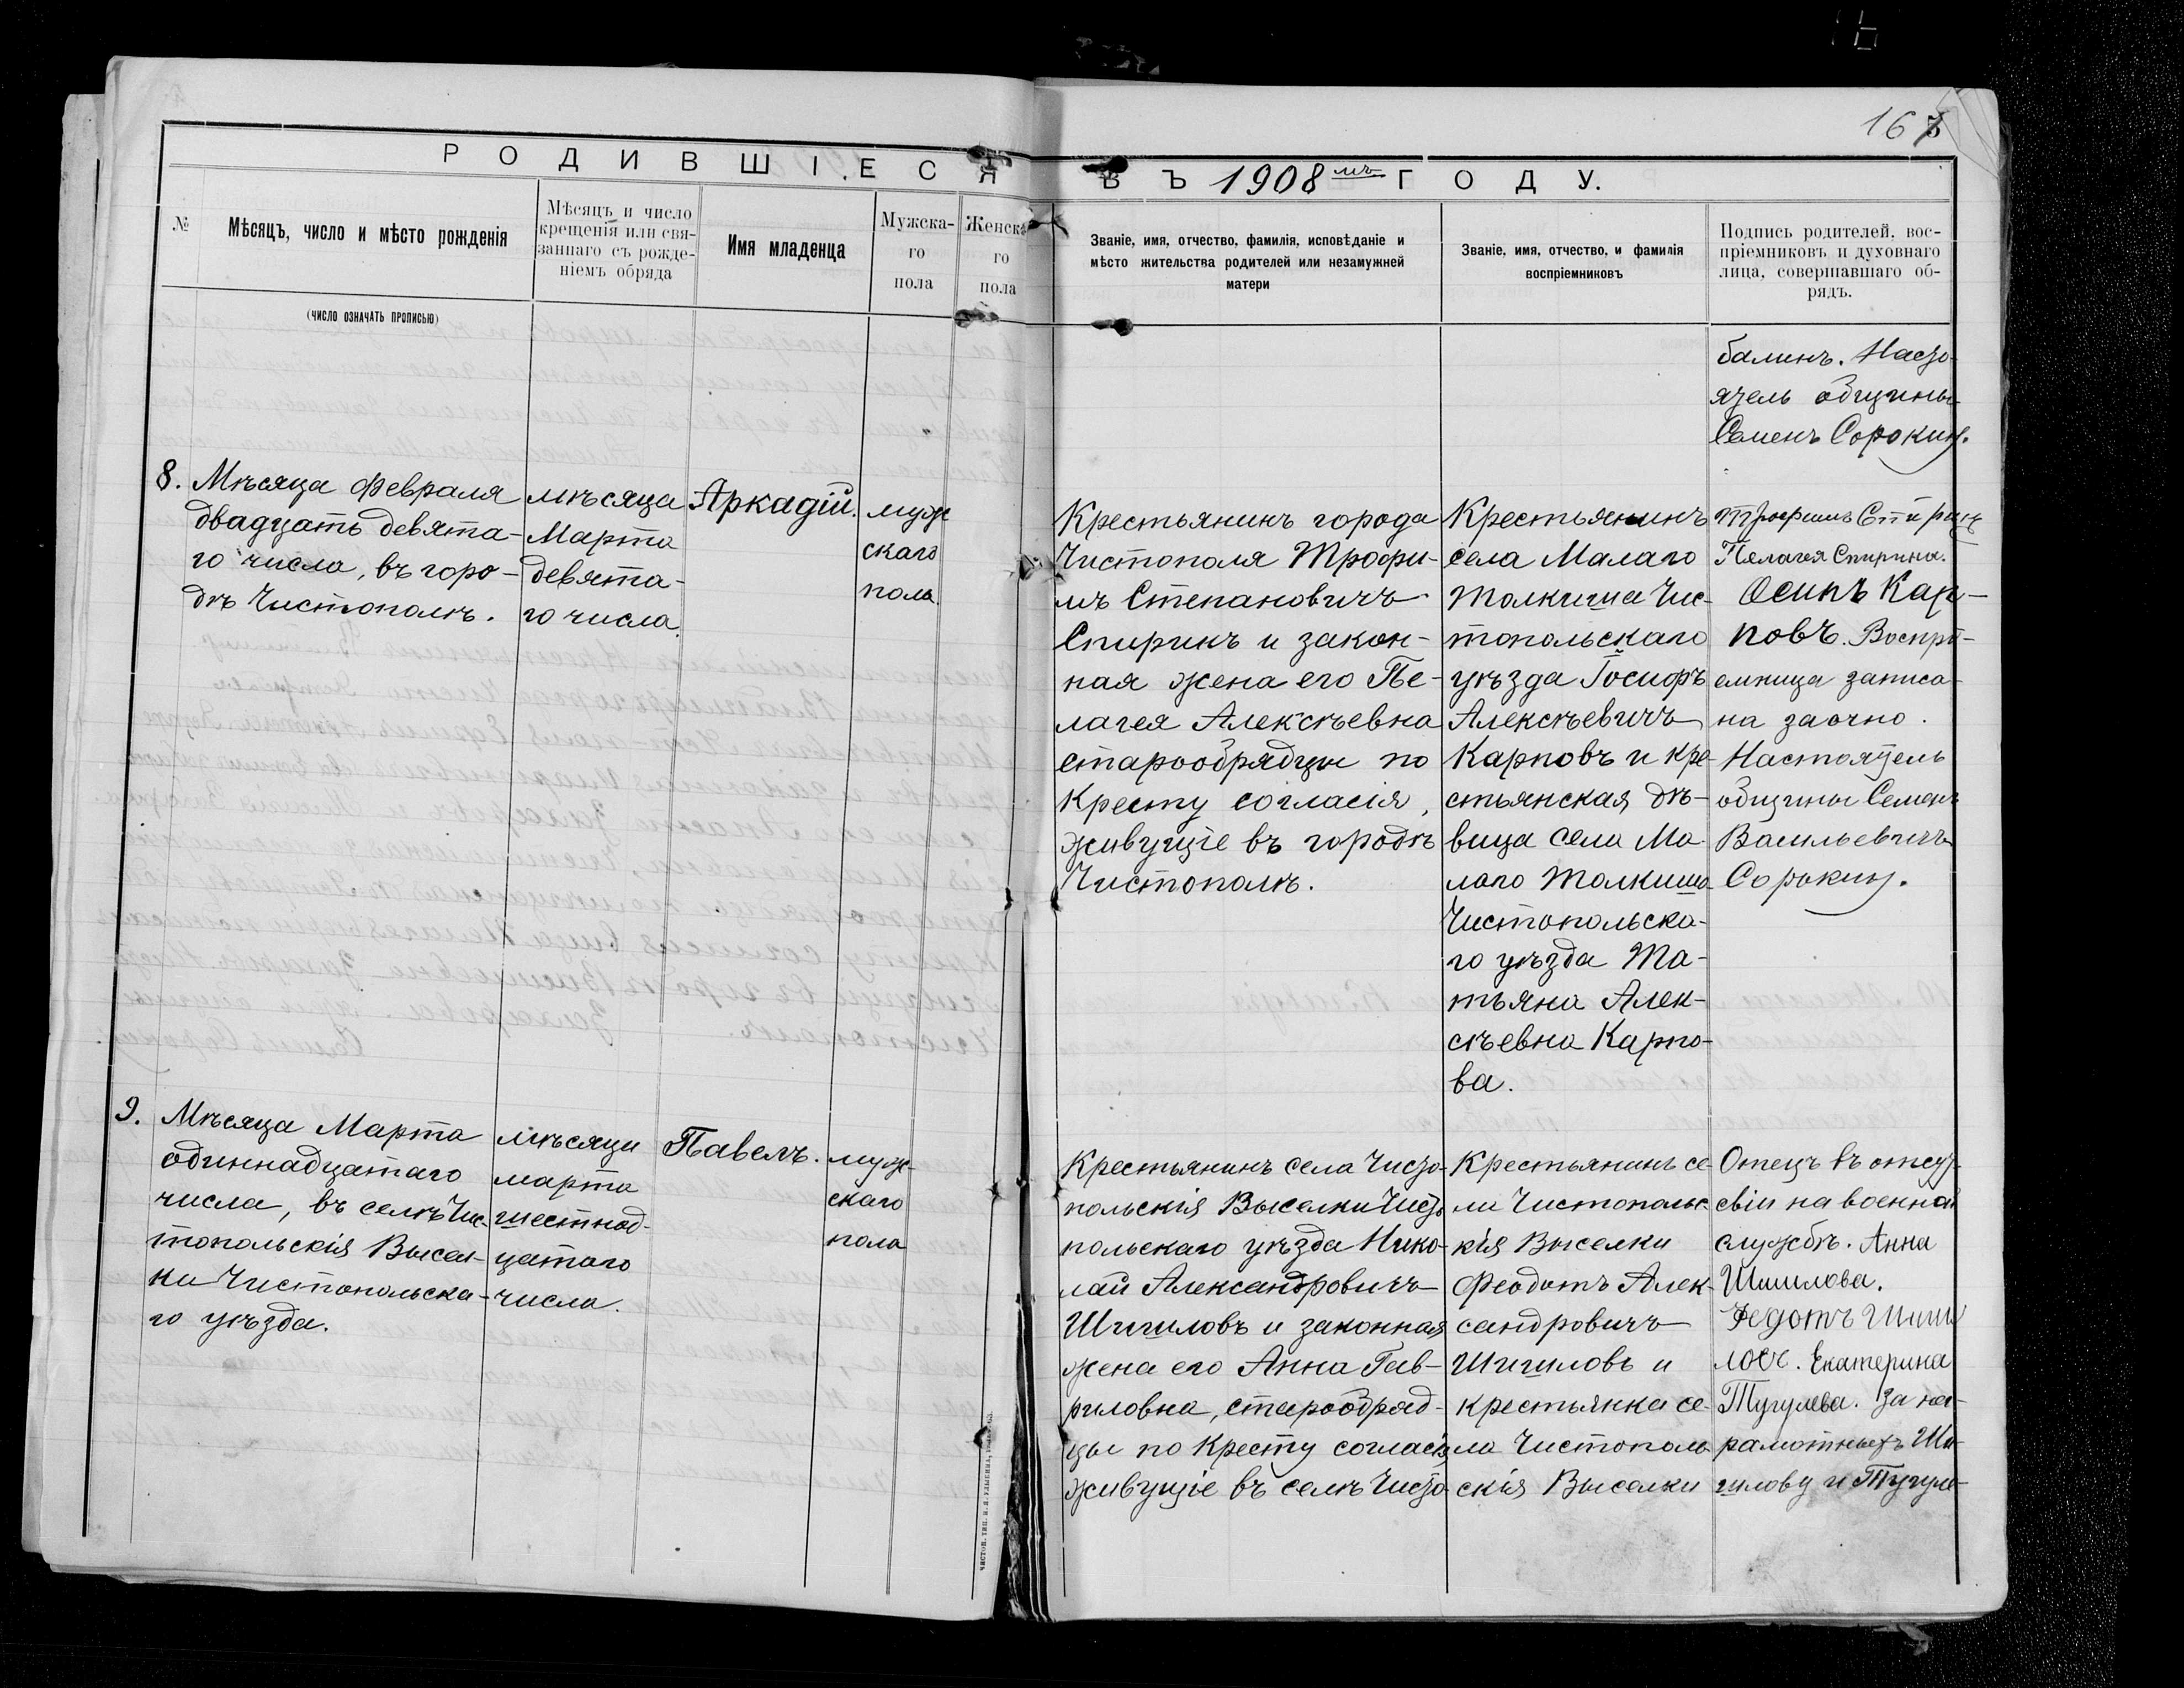 167
РОДИВШІЕСЯ ВЪ 1908мъ ГОДУ.
№
Мѣсяцъ, число и мѣсто рожденія
(число означать прописью)
Мѣсяцъ и число
крещенія или свя-
заннаго съ рожде-
ніемъ обряда
Имя младенца
Мужска-
го
пола
Женска-
го
пола
Званіе, имя, отчество, фамилія, исповѣданіе и
мѣсто жительства родителей или незамужней
матери
Званіе, имя, отчество, и фамилія
воспріемниковъ
Подпись родителей, вос-
пріемниковъ и духовнаго
лица, совершавшаго об-
рядъ.
балинъ. Насто-
ятель общины
Семенъ Сорокинъ.
8.
Мѣсяца Февраля
двадцать девята-
го числа, въ горо-
дѣ Чистополѣ.
мѣсяца
Марта
девята-
го числа.
Аркадій.
муж
скаго
пола.
Крестьянинъ города
Чистополя Трофи-
мъ Степановичъ
Спиринъ и закон-
ная жена его Пе-
лагея Алексѣевна
старообрядцы по
Кресту согласія,
живущіе въ городѣ
Чистополѣ.
Крестьянинъ
села Малаго
Толкиша Чис-
топольскаго
уѣзда Іосифъ
Алексѣевичъ
Карповъ и кре-
стьянская дѣ-
вица села Ма-
лаго Толкиша
Чистопольска-
го уѣзда Та-
тьяна Алек-
сѣевна Карпо-
ва.
Трофимъ Спиринъ
Пелагея Спирина.
Осипъ Кар-
повъ. Воспрі-
емница записа-
на заочно.
Настоятель
общины Семенъ
Васильевичъ
Сорокинъ.
9.
Мѣсяца Марта
одиннадцатаго
числа, въ селѣ Чис-
топольскія Высел-
ки Чистопольска-
го уѣзда.
мѣсяца
марта
шестнад-
цатаго
числа.
Павелъ.
муж-
скаго
пола
Крестьянинъ села Чисто-
польскія Выселки Чисто-
польскаго уѣзда Нико-
лай Александровичъ
Шишловъ и законная
жена его Анна Гав-
риловна, старообряд-
цы по Кресту согласія
живущіе въ селѣ Чисто-
Крестьянинъ се-
ла Чистопольс-
кія Выселки
Феодотъ Алек-
сандровичъ
Шишловъ и
крестьянка се-
ла Чистополь-
скія Выселки
Отецъ въ отсут-
свіи на военной
службѣ. Анна
Шишлова.
Федотъ Шиш
ловъ. Екатерина
Тугулева. За не-
рамотныхъ Ши-
шлову и Тугуле-
ЧИСТОП. ТИП.